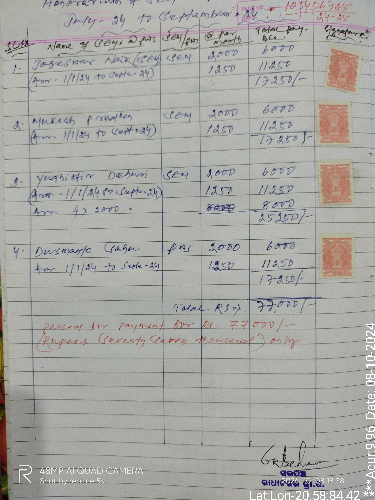 Honorarium of
July-24 to September-24
Sl.No Name of Secy & D.pns Secy/pns @ per month Total pay. Signature
1. Naik (Secy) Secy 2000 6000
(Arr- 1/1/24 to Sept-24) 1250 11250
17250/-
2. Mukesh Pradhan Secy 2000 6000
(Arr- 1/1/24 to Sept-24) 1250 11250
17250/-
3. Yudhistir Secy 2000 6000
(Arr- 1/1/24 to Sept-24) 1250 11250
Arr 4x2000 8000
25250/-
4. Dusmanta Sahu pns 2000 6000
Arr 1/1/24 to Sept-24 1250 11250
17250/-
Total Rs 77,000/-
passed for payment for Rs 77000/-
(Rupees Seventy Seven thousand) only
ସରପଞ୍ଚ
REDMI NOTE
48MP AI QUAD CAMERA
Shot by redmi note 5s
Lat:Lon-20.58:84.42
***Acur:9.96 Date:08-10-2024